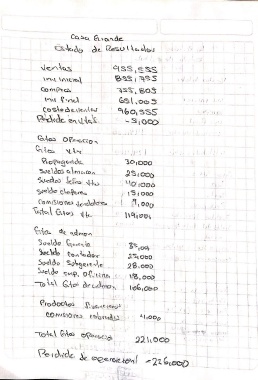 Casa Grande
Estado de Resultados
Ventas 955,555
inv inicial 855,755
Compras 755,805
inv final 651,005
costo de ventas 960,555
Perdida en vtas -5,000
Gtos Operacion
Gtos vta
Propaganda 30,000
sueldos almacen 25,000
Sueldo Jefe vta 40,000
sueldo choferes 15,000
comisiones vendedores 9,000
Total Gtos Vta 119,000
Gtos de admon
Sueldo Gerente 35,000
Sueldo contador 25,000
Sueldo Subgerente 28,000
Sueldo sup. Oficina 18,000
Total Gtos de admon 106,000
Productos financieros
comisiones cobradas 4,000
Total Gtos operacio 221,000
Perdida de operacional -226,000